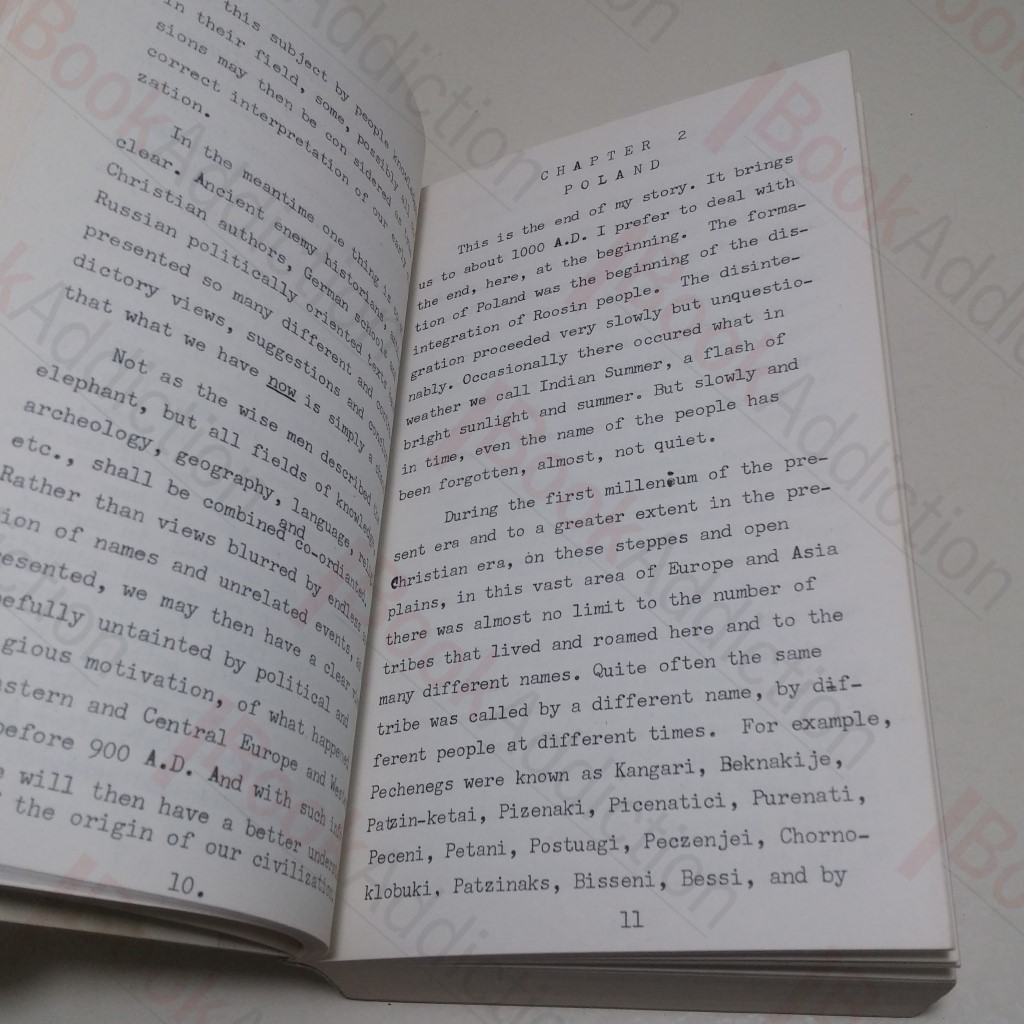 this subject by people
in their field, some, possibly all
sions may then be con sidered as
correct interpretation of our early
zation.
In the meantime one thing is
clear. Ancient enemy historians,
Christian authors, German schools
Russian politically oriented texts
presented so many different and
dictory views, suggestions and
that what we have now is simply a
Not as the wise men described the
elephant, but all fields of knowledge,
archeology, geography, language,
etc., shall be combined and co-ordianted.
Rather than views blurred by endless
ion of names and unrelated events,
esented, we may then have a clear
efully untainted by political and
gious motivation, of what happened
astern and Central Europe and
before 900 A.D. And with such
will then have a better
the origin of our civilization
10.
CHAPTER 2
POLAND
This is the end of my story. It brings
us to about 1000 A.D. I prefer to deal with
the end, here, at the beginning. The forma-
tion of Poland was the beginning of the dis-
integration of Roosin people. The disinte-
gration proceeded very slowly but unquestio-
nably. Occasionally there occured what in
weather we call Indian Summer, a flash of
bright sunlight and summer. But slowly and
in time, even the name of the people has
been forgotten, almost, not quiet.
During the first millenium of the pre-
sent era and to a greater extent in the pre-
Christian era, on these steppes and open
plains, in this vast area of Europe and Asia
there was almost no limit to the number of
tribes that lived and roamed here and to the
many different names. Quite often the same
tribe was called by a different name, by dif-
ferent people at different times. For example,
Pechenegs were known as Kangari, Beknakije,
Patzin-ketai, Pizenaki, Picenatici, Purenati,
Peceni, Petani, Postuagi, Peczenjei, Chorno-
klobuki, Patzinaks, Bisseni, Bessi, and by
11